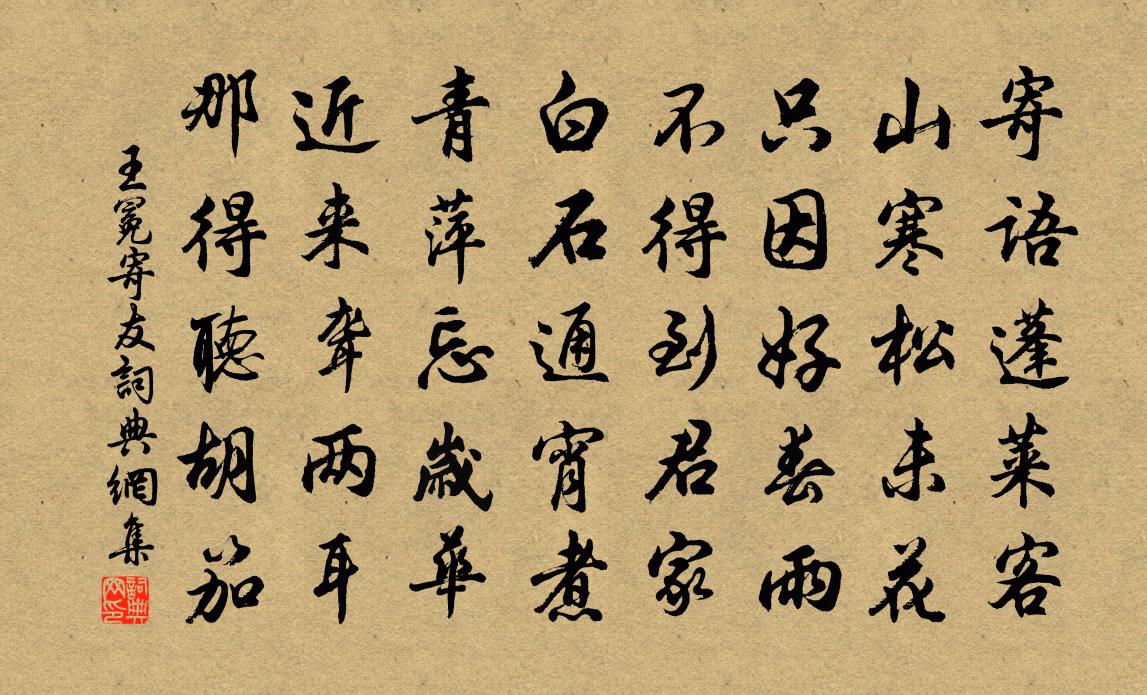 寄語蓬萊客
山寒松未花
只因好春雨
不得到君家
白石通宵煮
青萍忘歲華
近来聋两耳
那得聽胡笳
王冕寄友詞典網集
詞典网印